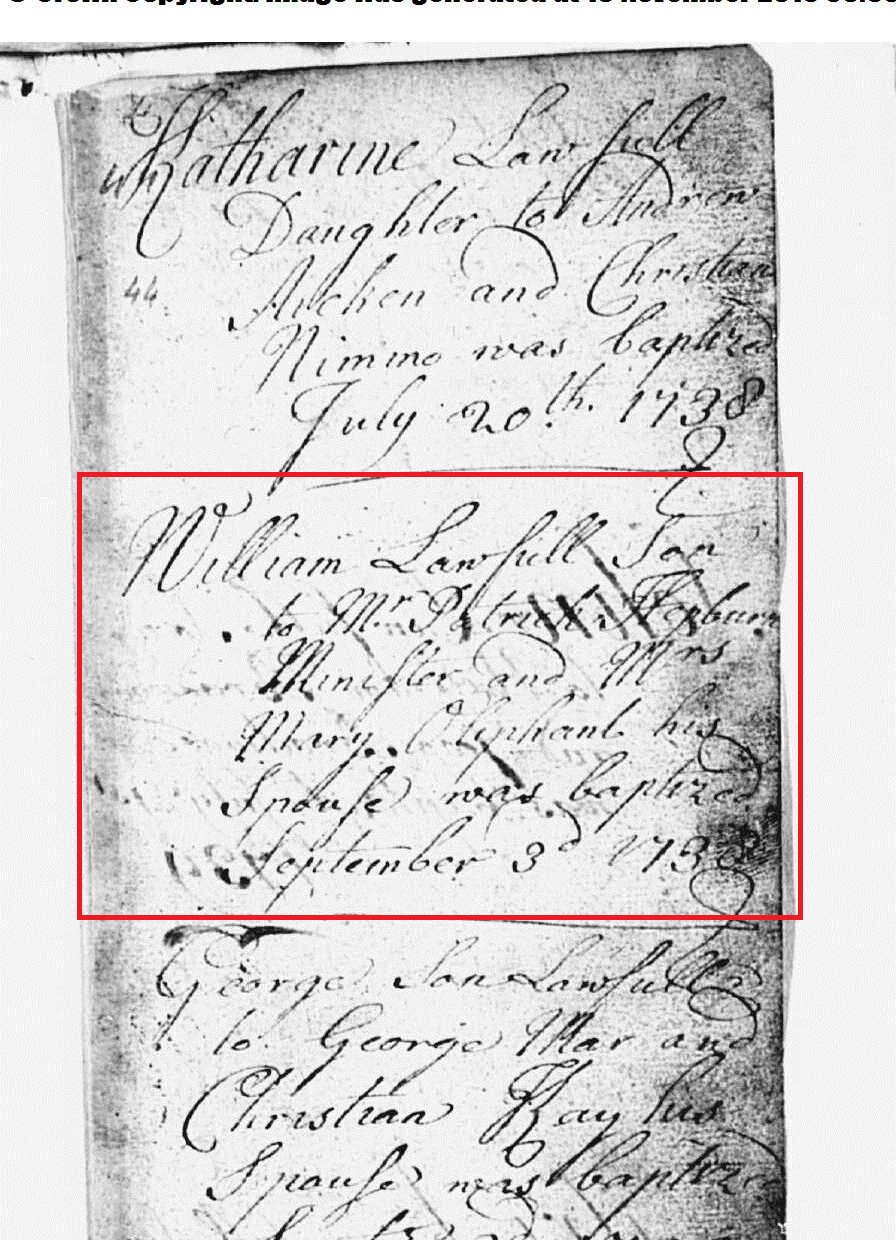 Katharine Lawfull
Daughter to Andrew
44
Aicken and Christian
Nimmo was baptized
July 20th. 1738
William Lawfull Son
to Mr Patrick Hepburn
Minister and Mrs
Mary Oliphant his
Spouse was baptized
September 3d 1738
George Son Lawfull
to George Mar and
Christian Hay his
Spouse was baptized